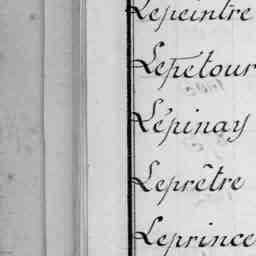 Lepeintre
LePetour
Lépinay
Leprêtre
Leprince